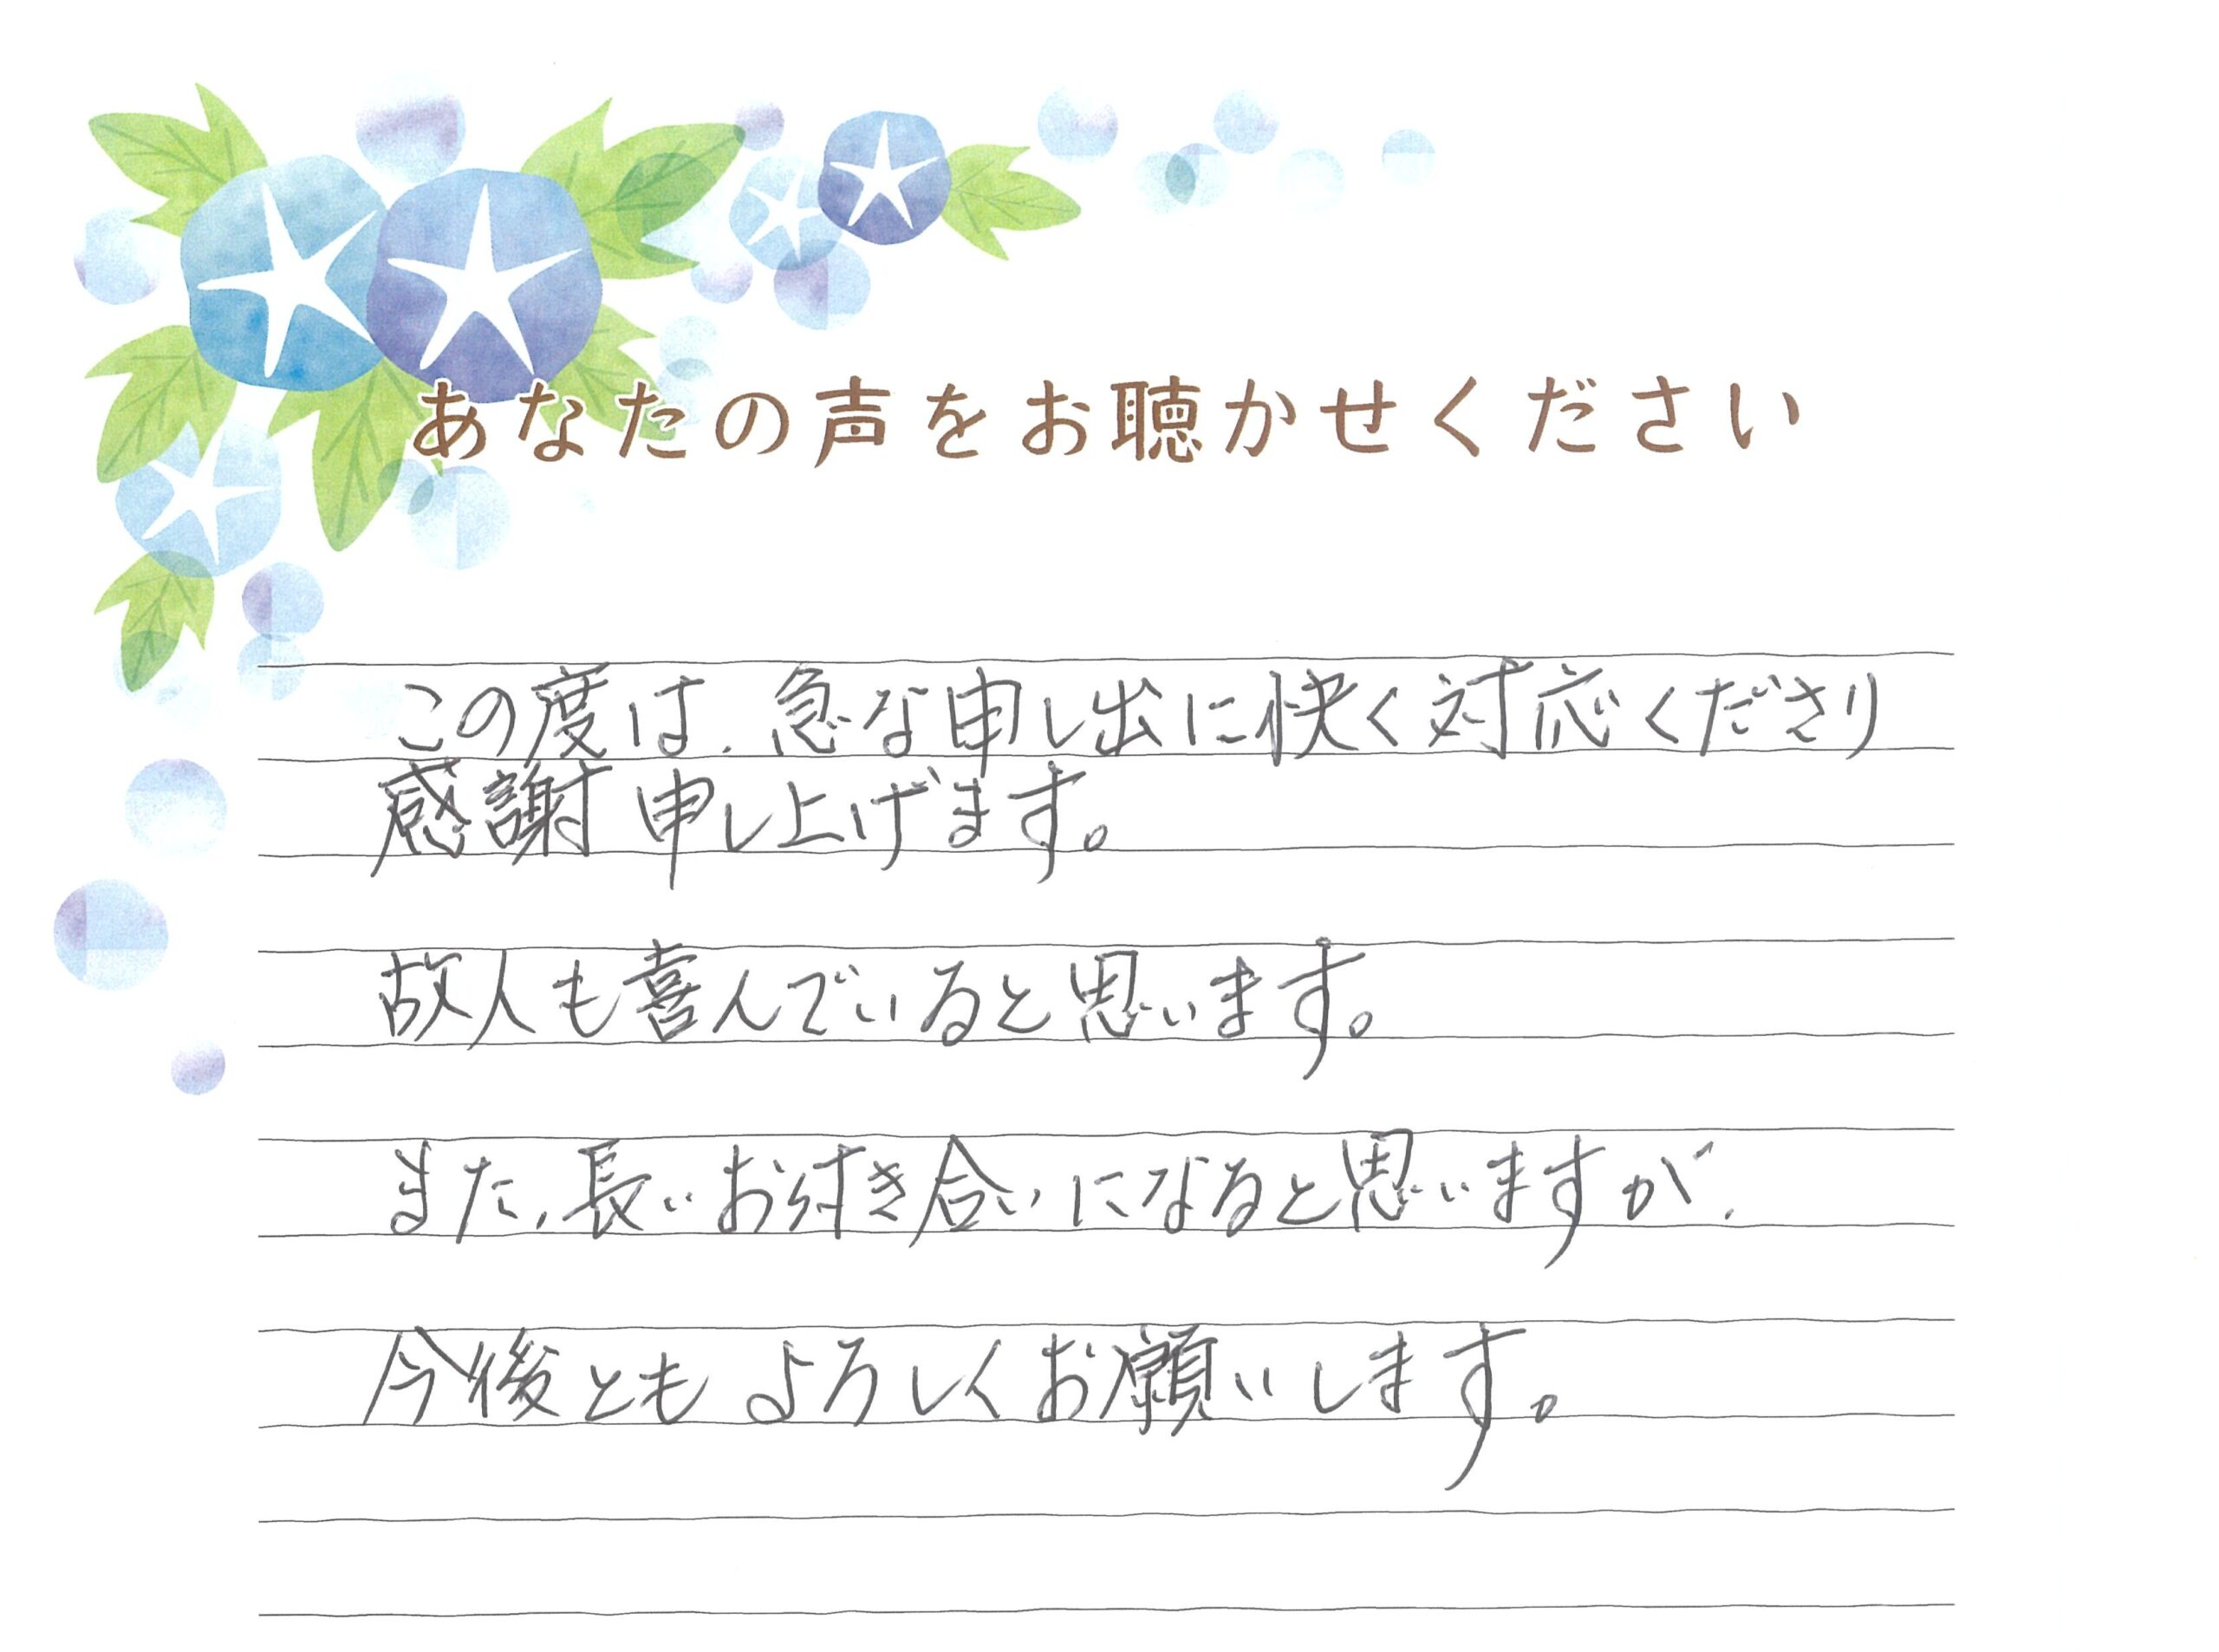 あなたの声をお聴かせください
この度は、急な申し出に快く対応くださり
感謝申し上げます。
故人も喜んでいると思います。
また、長いお付き合いになると思いますが、
今後ともよろしくお願いします。